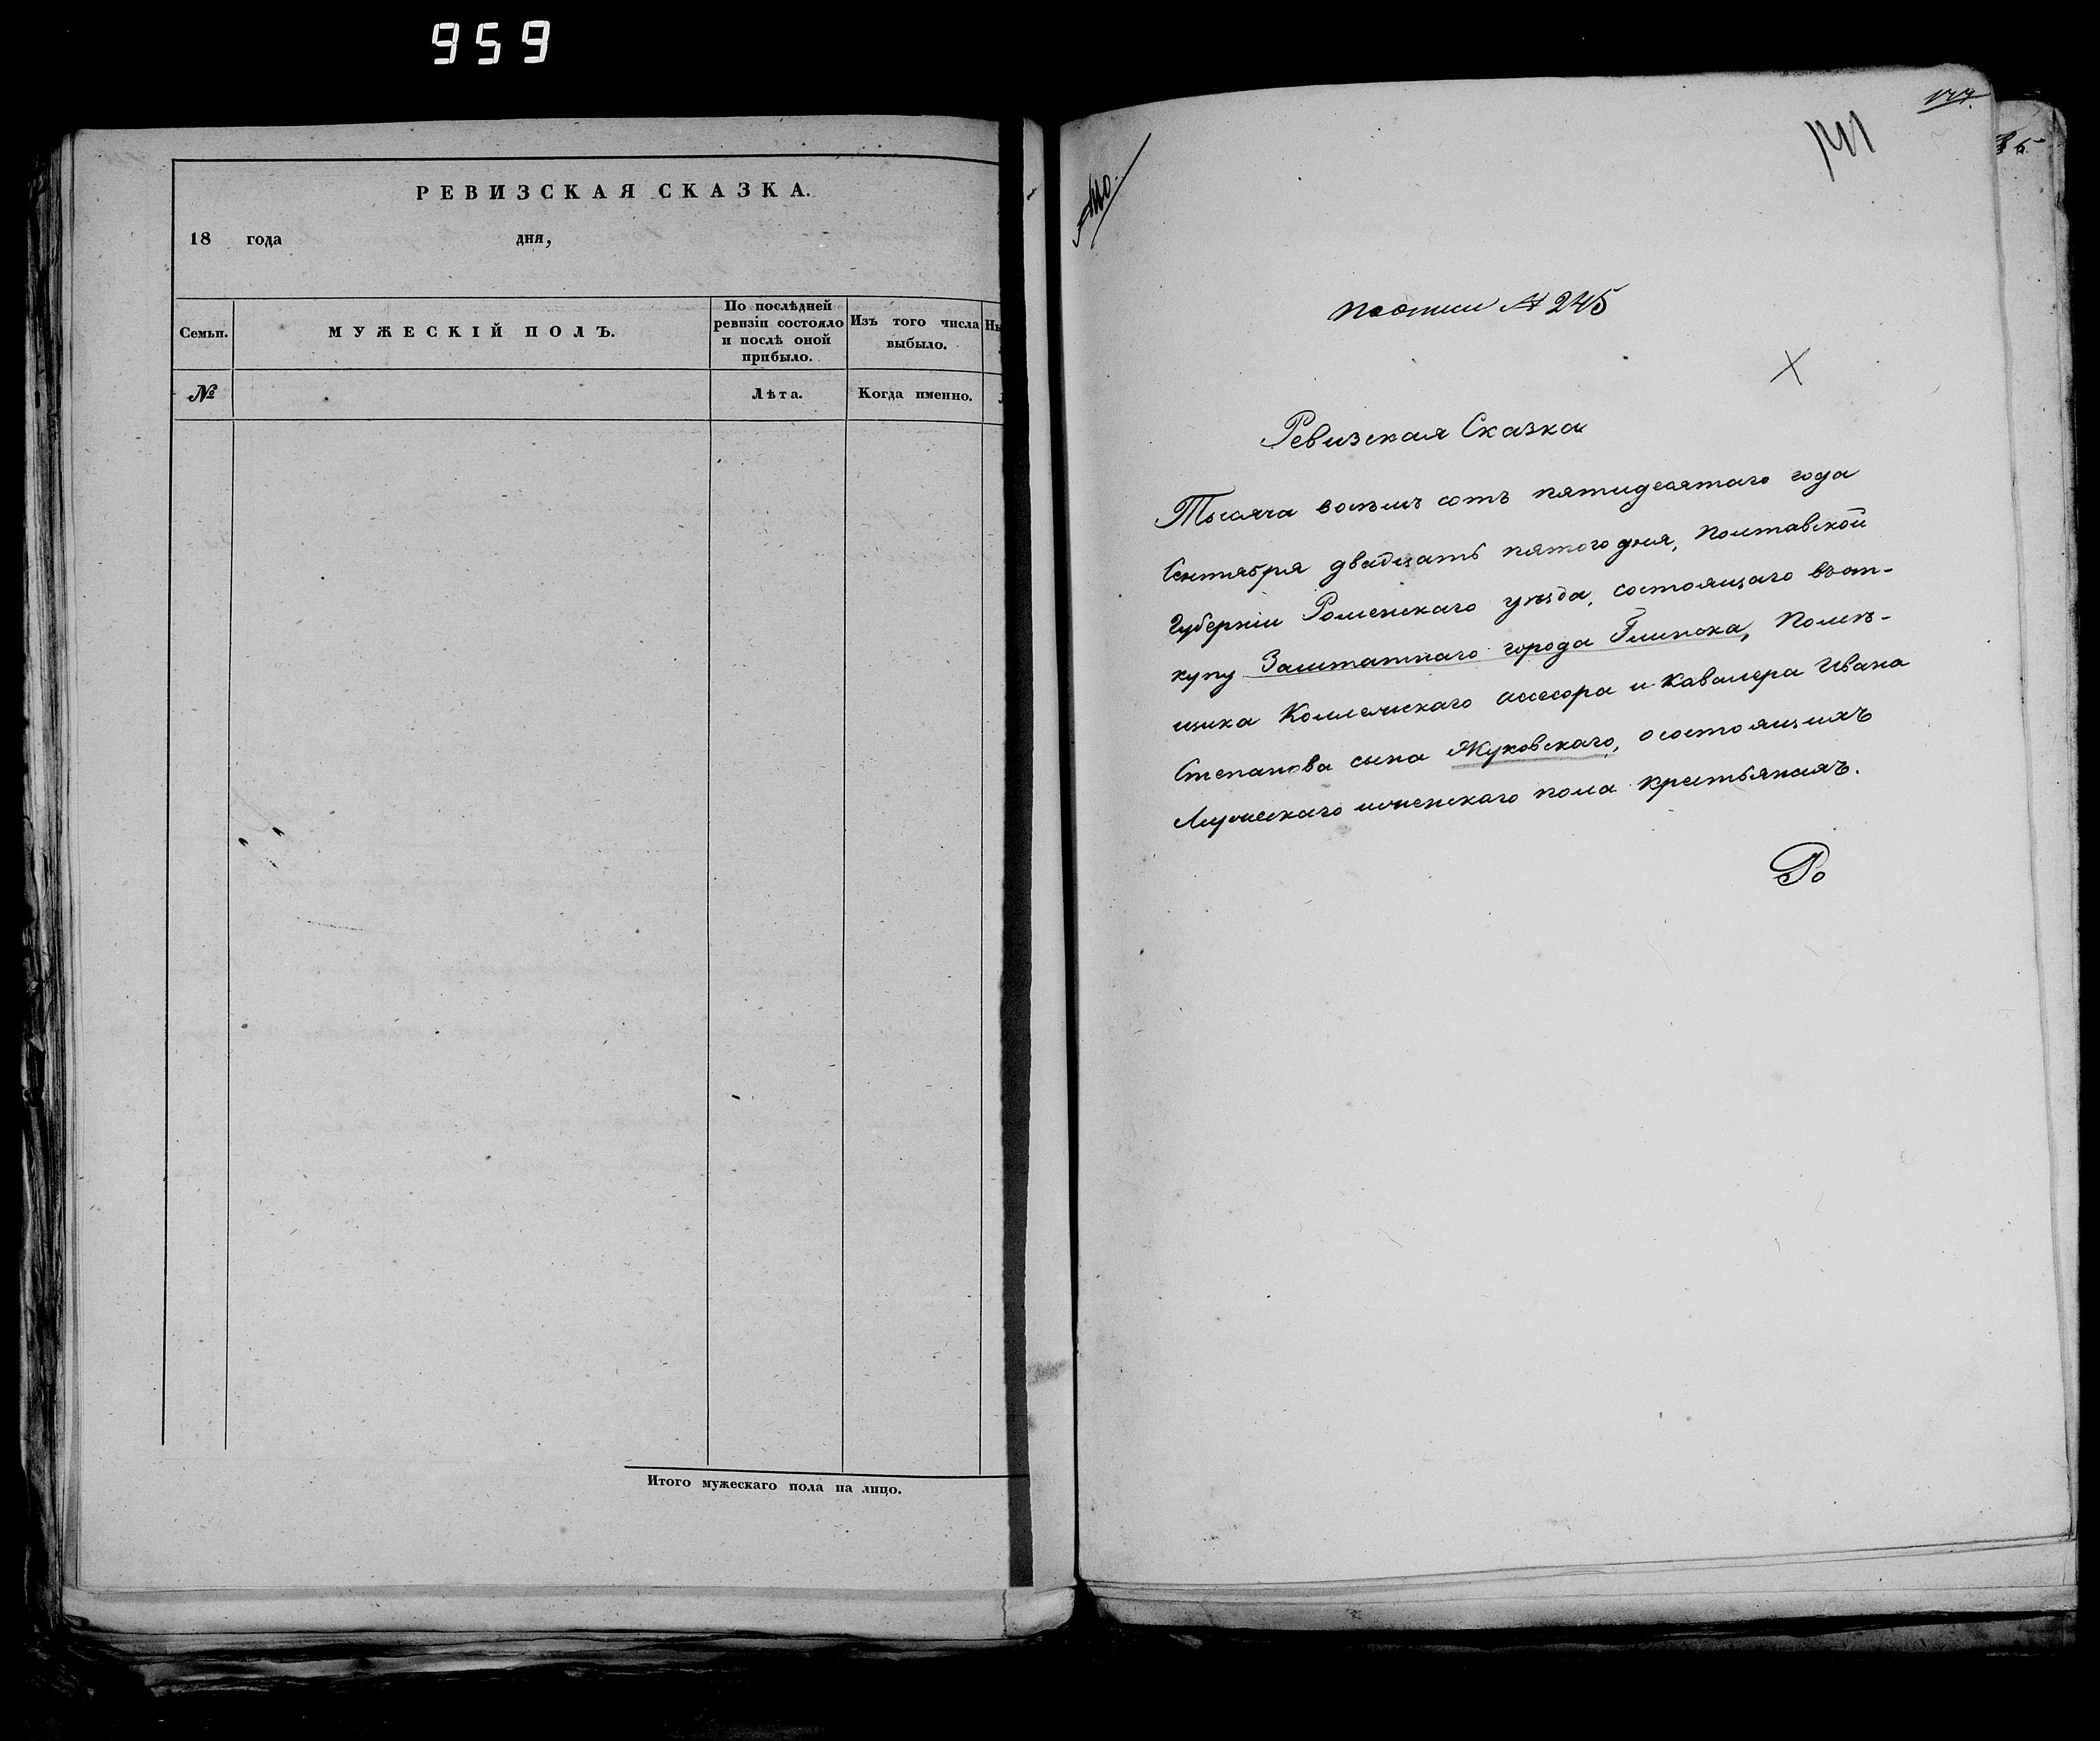 959
РЕВИЗСКАЯ СКАЗКА.
18 года дня,
Семьи.
МУЖЕСКІЙ ПОЛЪ.
По послѣдней
ревизіи состояло
и послѣ оной
прибыло.
Изъ того числа
выбыло.
№
Лѣта.
Когда именно.
Итого мужескаго пола на лицо.
141
поописи № 245
Ревизская Сказка
Тысяча восемь сотъ пятидесятаго года
Сентября двадцать пятого дня, Полтавской
Губерніи Роменскаго уѣзда, состоящаго въот-
купу Заштатнаго города Глинска, Помѣ-
щика Коллежскаго ассесора и Кавалера Ивана
Степанова сына Жуковскаго, осостоящихъ
Мужескаго иженскаго пола крестьянахъ.